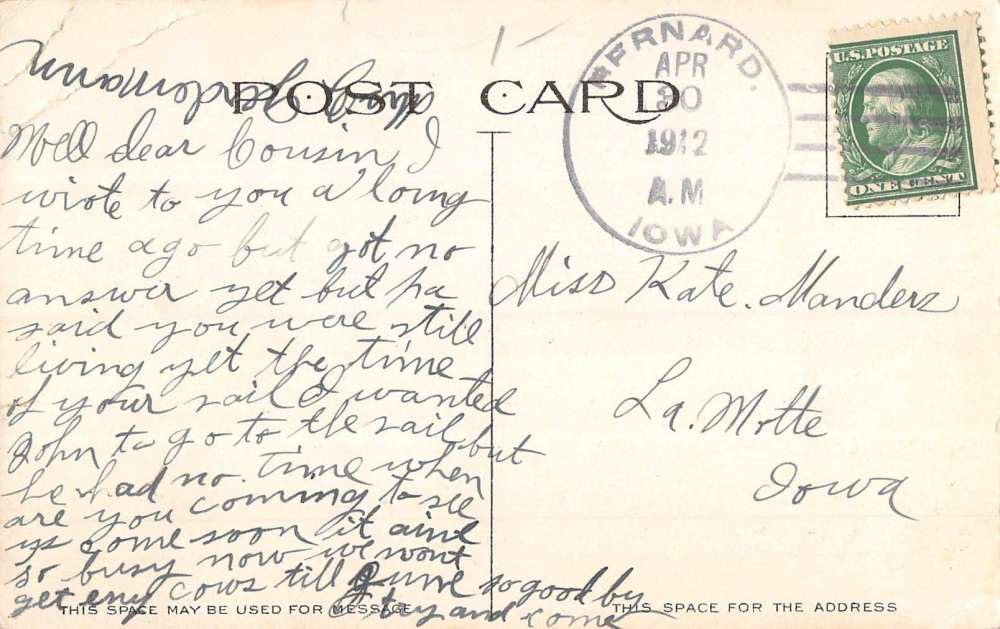 POST CARD
BERNARD.
APR
30
1912
A.M
IOWA
U.S. POSTAGE
ONE CENT
Well dear Cousin, I
wrote to you a long
time ago but got no
answer yet but pa
said you were still
living yet the time
of your sail I wanted
John to go to the sail but
he had no time when
are you coming to see
us come soon it aint
so busy now we wont
get eny cows till June so good by
try and come
Miss Kate. Manderz
La. Motte
Iowa
THIS SPACE MAY BE USED FOR MESSAGE
THIS SPACE FOR THE ADDRESS